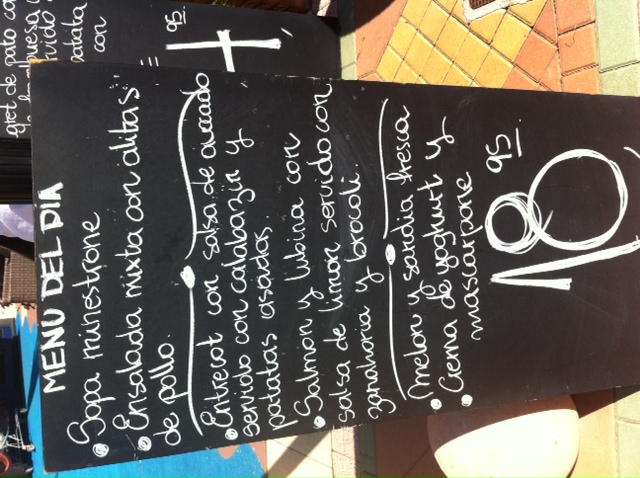 MENU DEL DIA
Sopa minestrone
Ensalada mixta con alitas
de pollo.
Entrecot con salsa de avocado
servido con calabazin y
patatas asados.
Salmon y lubina con
salsa de limon servido con
zanahoria y brocoli.
Melon y sandia fresca
Crema de yoghurt y
mascarpone
18,95
gret de pato co
patata
con
95